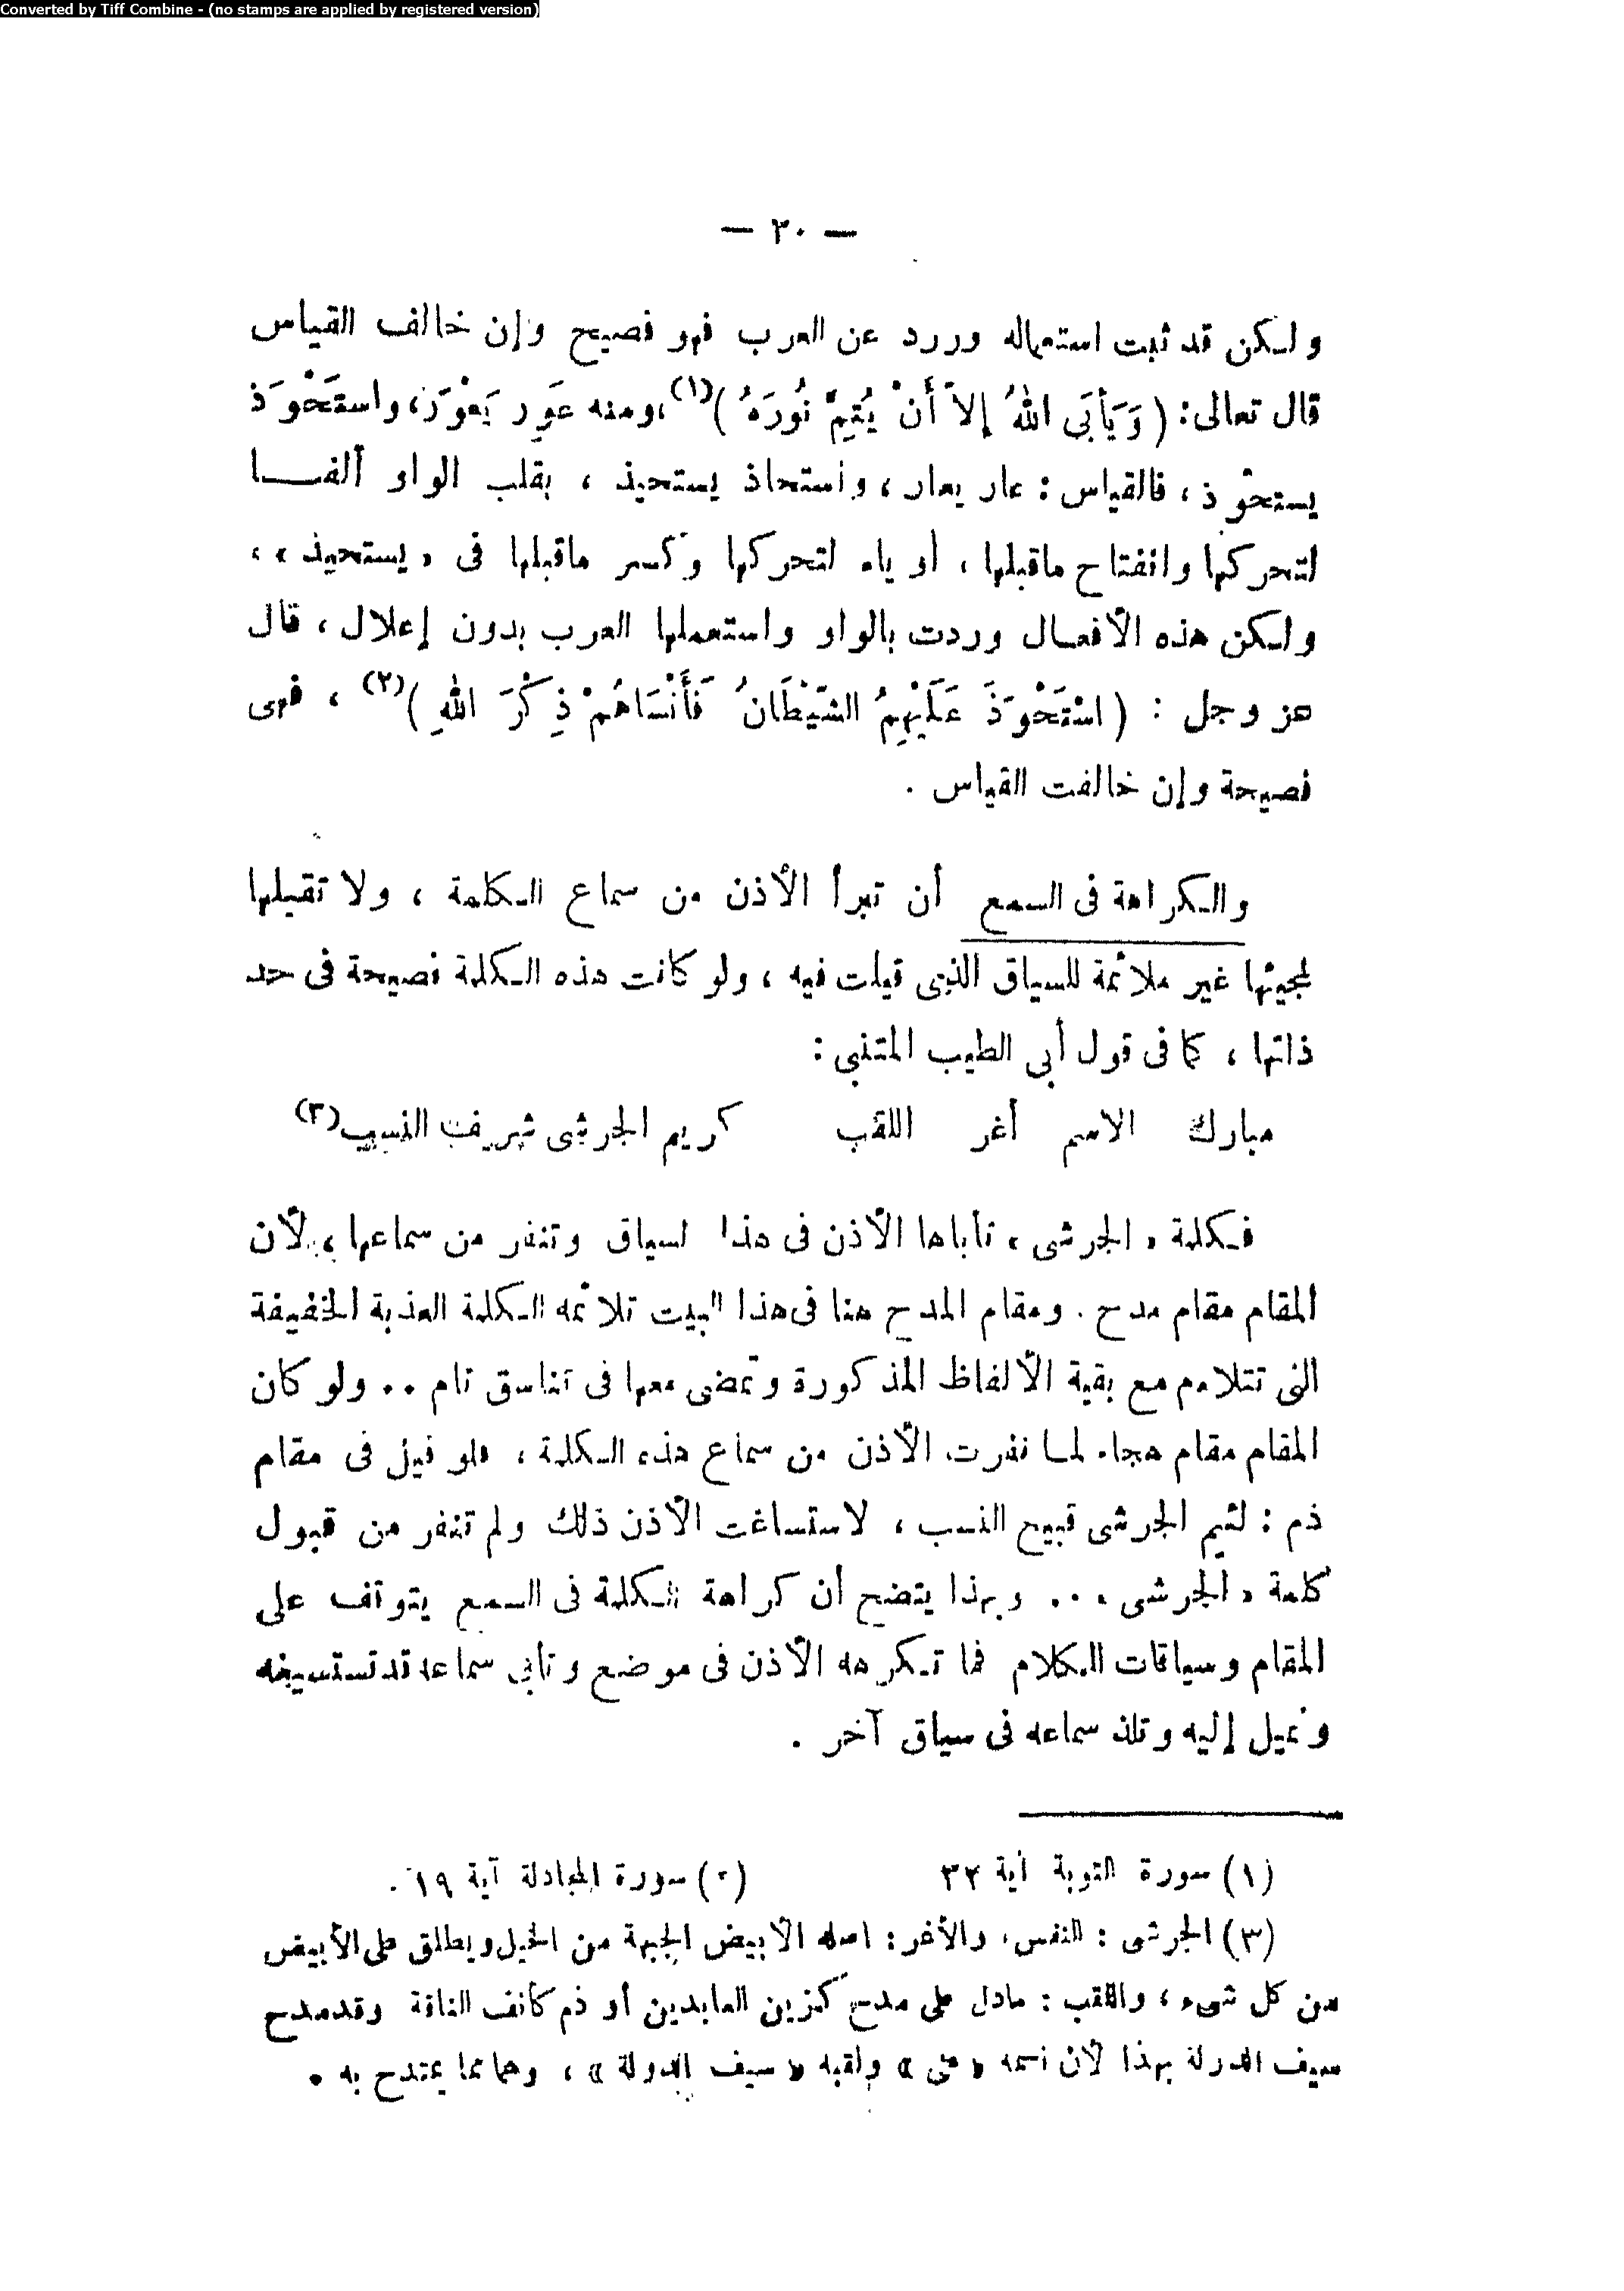 Converted by Tiff Combine - (no stamps are applied by registered version)
— ٢٠ —
ولكن قد ثبت استعماله وورد عن العرب فهو فصيح وإن خالف القياس
قال تعالى: (وَيَأْبَى اللهُ إِلاَّ أَنْ يُتِمَّ نُورَهُ)(١)، ومنه عَوِر يَعْوَر، واستَحْوَذ
يستحوذ، فالقياس: عار يعار، واستحاذ يستحيذ، بقلب الواو ألفا
لتحركها وانفتاح ماقبلها، أو ياء لتحركها وكسر ماقبلها فى «يستحيذ»،
ولكن هذه الأفعال وردت بالواو واستعملها العرب بدون إعلال، قال
عز وجل: (اسْتَحْوَذَ عَلَيْهِمُ الشَّيْطَانُ فَأَنْسَاهُمْ ذِكْرَ اللهِ)(٢)، فهى
فصيحة وإن خالفت القياس.
والكراهة فى السمع أن تبرأ الأذن من سماع الكلمة، ولا تقبلها
لمجيئها غير ملائمة للسياق الذى قيلت فيه، ولو كانت هذه الكلمة فصيحة فى حد
ذاتها، كما فى قول أبى الطيب المتنبى:
مبارك الاسم أغر اللقب كريم الجرشى شريف النسب(٣)
فكلمة «الجرشى» تأباها الأذن فى هذا السياق وتنفر من سماعها، لأن
المقام مقام مدح. ومقام المدح هنا فى هذا البيت تلائمه الكلمة العذبة الخفيفة
التى تتلاءم مع بقية الألفاظ المذكورة وتمضى معها فى تناسق تام .. ولو كان
المقام مقام هجاء لما نفرت الأذن من سماع هذه الكلمة، فلو قيل فى مقام
ذم: لئيم الجرشى قبيح النسب، لاستساغت الأذن ذلك ولم تنفر من قبول
كلمة «الجرشى» .. وبهذا يتضح أن كراهة الكلمة فى السمع يتوقف على
المقام وسياقات الكلام فما تكرهه الأذن فى موضع وتأبى سماعه قد تستسيغه
وتميل إليه وتلذ سماعه فى سياق آخر.
(١) سورة التوبة آية ٣٢ (٢) سورة المجادلة آية ١٩.
(٣) الجرشى: النفس، والأغر: أصله الأبيض الجبهة من الخيل ويطلق على الأبيض
من كل شىء، واللقب: مادل على مدح كزين العابدين أو ذم كأنف الناقة وقد مدح
سيف الدولة بهذا لأن اسمه «على» ولقبه «سيف الدولة»، وهما مما يمتدح به.